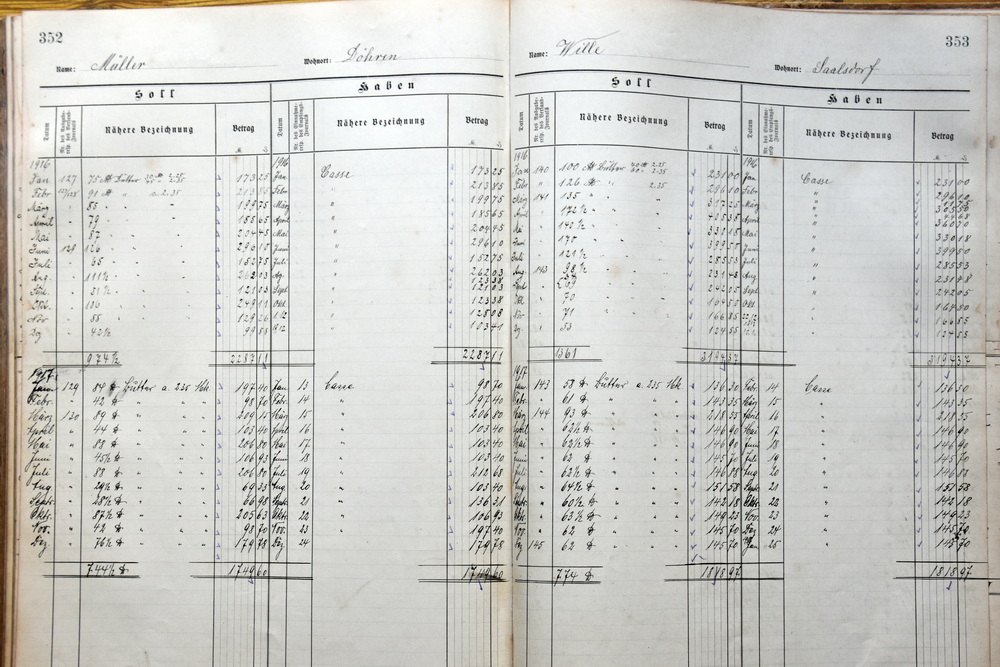 352
Name: Müller Wohnort: Döhren
Soll Haben
Datum Nähere Bezeichnung Betrag Datum Nähere Bezeichnung Betrag
M. M.
1916 1916
Jan 127 75 Butter 2.35 173 25 Jan Casse 173 25
Febr 91 " a 2.35 213 85 Febr " 213 85
März 85 " " 199 75 März " 199 75
April 79 " " 185 65 April " 185 65
Mai 87 " " 204 45 Mai " 204 45
Juni 129 126 " " 296 10 Juni " 296 10
Juli 65 " " 152 75 Juli " 152 75
Aug. 111½ " " 262 03 Ag. " 262 03
51½ " " 121 03 Sept "
Okt. 106 " " 249 11 Okt " 123 38
Nov 55 " " 129 26 "
Dez 42½ " " 99 88 " 103 41
974½ 2287 11 2287 11
1917
Jan 129 84 Butter a. 235 197 40 Jan 13 Casse 98 70
Febr. 42 " " " 98 70 Febr. 14 " 197 40
März 130 89 " " " 209 15 März 15 " 206 80
April 44 " " " 103 40 April 16 " 103 40
Mai 88 " " " 206 80 Mai 17. " 103 40
Juni 45½ " " " 106 93 Juni 18 " 103 40
Juli 88 " " " 206 80 Juli 19 " 212 68
Aug 29½ " " " 69 33 Aug 20 " 103 40
Septr. 28½ " " " 66 98 Septr. 21 " 136 31
Okt. 87½ " " " 205 63 Okt. 22 " 106 93
Nov. 42 " " " 98 70 Nov. 23 " 197 40
Dez 76½ " " " 179 78 Dez 24 " 179 78
744½ 1749 60 1749 60
353
Name: Wille Wohnort: Saalsdorf
Soll Haben
Datum Nähere Bezeichnung Betrag Datum Nähere Bezeichnung Betrag
M. M.
1916 1916
Jan 140 100 Butter 2.25 231 00 Jan Casse 231 00
Febr 126 2.35 296 10 Febr " 296 10
März 141 135 " " 317 25 März "
April 172½ " " 405 38 April "
Mai 140½ " " 330 18 Mai " 360 70
Juni 170 " " 399 50 Juni " 330 18
Juli 121½ " " 285 53 Juli " 399 50
Aug 143 98½ " " 231 48 Aug " 285 53
" " 242 05 Sept " 231 48
Okt. 70 " " 164 50 Okt " 242 05
Nov 71 " " 166 85 " 164 50
Dez 53 " " 124 55 " 166 85
124 55
1361 3194 37 3194 37
1917
Jan 143 58 Butter a 235 136 30 Jan 14 Casse 136 30
Febr. 61 " " " 143 35 März 15 " 143 35
März 144 93 " " " 218 55 April 16 " 218 55
April 62½ " " " 146 90 Mai 17 " 146 90
Mai 62½ " " " 146 90 Juni 18 " 146 90
Juni 62 " " " 145 70 Juli 19 " 145 70
Juli 62½ " " " 146 88 Aug 20 " 146 88
Aug 64½ " " " 151 58 Septr. 21 " 151 58
Septr. 60½ " " " 142 18 Okt. 22 " 142 18
Okt. 63½ " " " 149 23 Nov. 23 " 149 23
Nov. 62 " " " 145 70 Dez 24 " 145 70
Dez 145 62 " " " 145 70 Jan 25 " 145 70
774 1818 97 1818 97